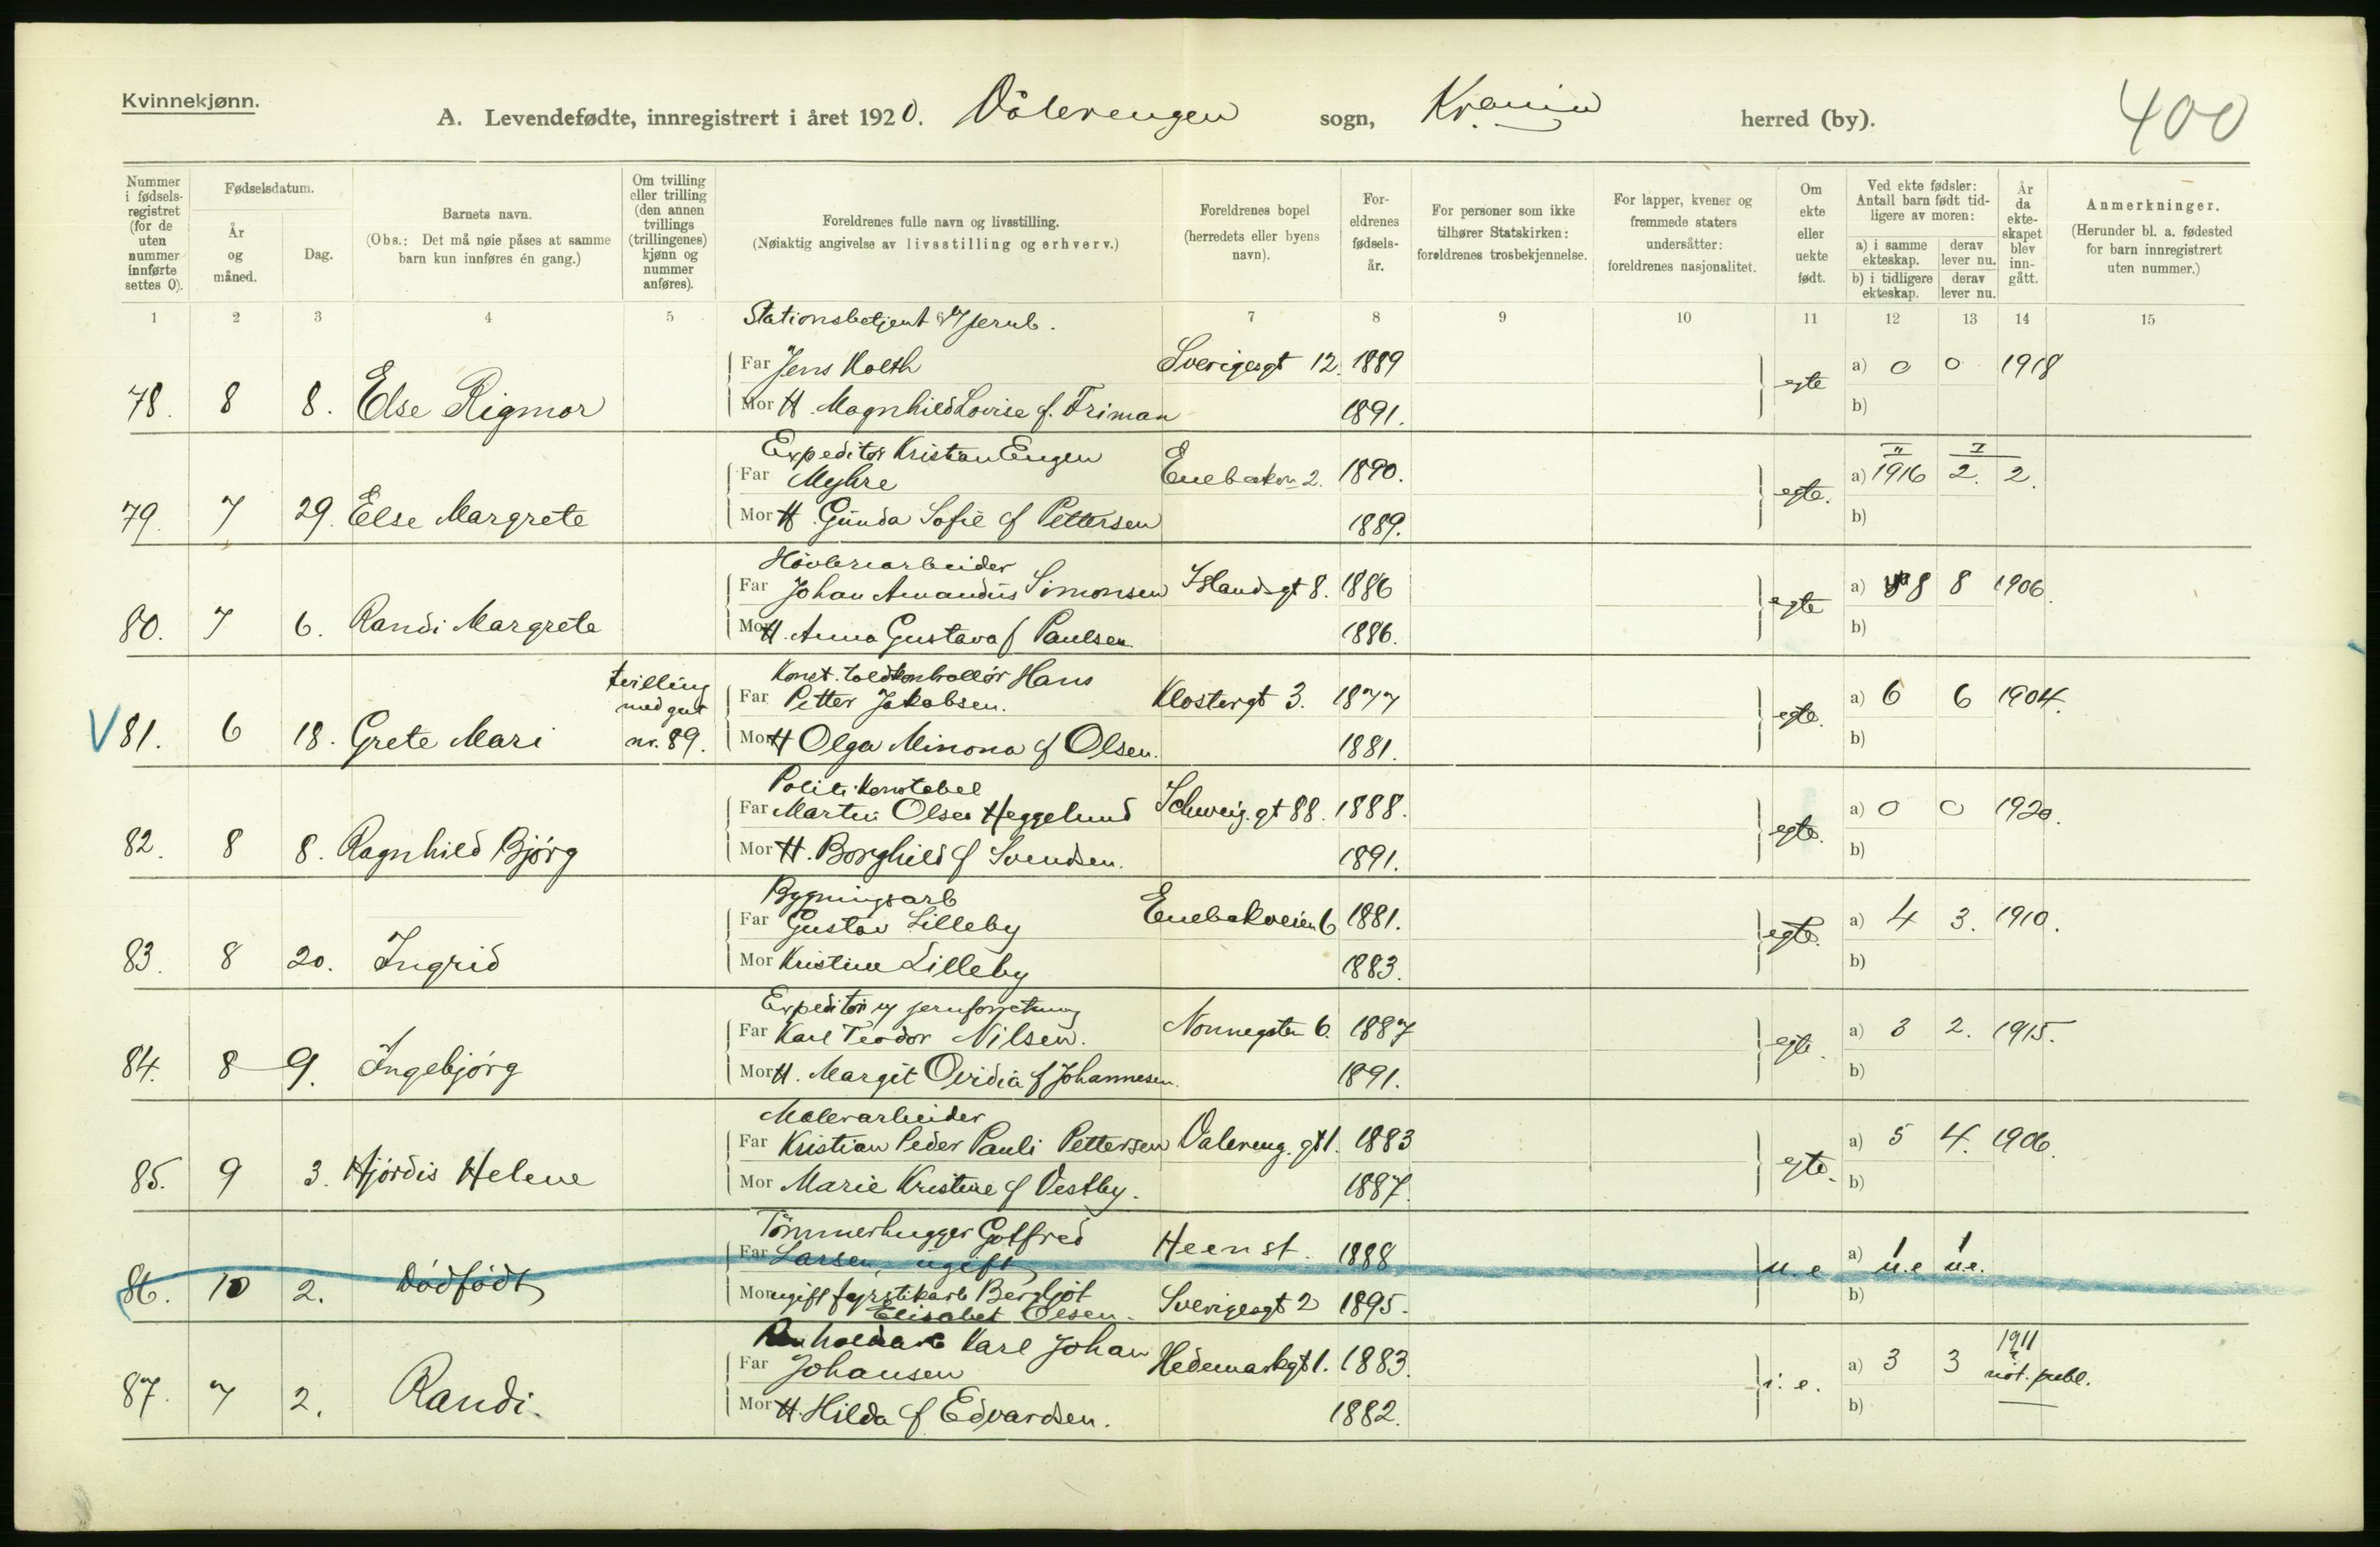 Kvinnekjønn.
A. Levendefødte, innregistrert i året 1920. Vålerengen sogn, Kr.ania herred (by). 400
Nummer i fødsels-registret (for de uten nummer innførte settes 0).
Fødselsdatum.
År og måned.
Dag.
Barnets navn.
(Obs.: Det må nøie påses at samme barn kun innføres én gang.)
Om tvilling eller trilling (den annen tvillings (trillingenes) kjønn og nummer anføres).
Foreldrenes fulle navn og livsstilling.
(Nøiaktig angivelse av livsstilling og erhverv.)
Foreldrenes bopel (herredets eller byens navn).
For-eldrenes fødsels-år.
For personer som ikke tilhører Statskirken: foreldrenes trosbekjennelse.
For lapper, kvener og fremmede staters undersåtter: foreldrenes nasjonalitet.
Om ekte eller uekte født.
Ved ekte fødsler: Antall barn født tid-ligere av moren:
a) i samme ekteskap.
derav lever nu.
b) i tidligere ekteskap.
derav lever nu.
År da ekte-skapet blev inn-gått.
Anmerkninger.
(Herunder bl. a. fødested for barn innregistrert uten nummer.)
1 2 3 4 5 7 8 9 10 11 12 13 14 15
Stationsbetjent
Far Jens Kolth Sverigesgt 12. 1889 a) 0 0 1918
78. 8 8. Else Rigmor egte
Mor H. Magnhild Lovise f. Friman 1891. b)
Expeditør Kristian Engen
Far Myhre Enebakvn 2. 1890. a) 1916 2. 2.
79. 7 29. Else Margrete egte.
Mor H. Gunda Sofie f Pettersen 1889. b)
Høvleriarbeider
Far Johan Amandus Simonsen Islandsgt 8. 1886 a) 8 8 1906.
80. 7 6. Randi Margrete egte
Mor H. Anna Gustava f Paulsen 1886. b)
tvilling med gut nr. 89.
Konst. toldkontrollør Hans
Far Petter Jakobsen. Klostergt 3. 1877 a) 6 6 1904.
V 81. 6 18. Grete Mari egte.
Mor H Olga Minona f Olsen. 1881. b)
Politikonstabel
Far Martin Olsen Heggelund Schweig. gt 88. 1888. a) 0 0 1920.
82. 8 8. Ragnhild Bjørg egte.
Mor H. Borghild f Svendsen. 1891. b)
Bygningsarb
Far Gustav Lilleby Enebakveien 6 1881. a) 4 3. 1910.
83. 8 20. Ingrid egte.
Mor Kristine Lilleby 1883. b)
Expeditør i jernforretning
Far Karl Teodor Nilsen. Nonnegaten 6. 1887 a) 3 2. 1915.
84. 8 9. Ingebjørg egte.
Mor H. Margit Ovidia f Johannesen. 1891. b)
Malerarbeider
Far Kristian Peder Pauli Pettersen Valereng. gt 1. 1883 a) 5 4. 1906.
85. 9 3. Hjørdis Helene egte.
Mor Marie Kristine f Vestby. 1887. b)
Tømmerhugger Gotfred
Far Larsen, ugift Heen st. 1888 a) 1 u.e 1 u.e.
86. 10 2. Dødfødt u. e
Mor ugift fyrstikarb Bergljot Elisabet Olsen. Sverigesgt 2 1895. b)
Renholdsarb Karl Johan
Far Johansen Hedemarkgt 1. 1883. a) 3 3 1911 not. publ.
87. 7 2. Randi. i. e.
Mor H. Hilda f Edvardsen. 1882. b)